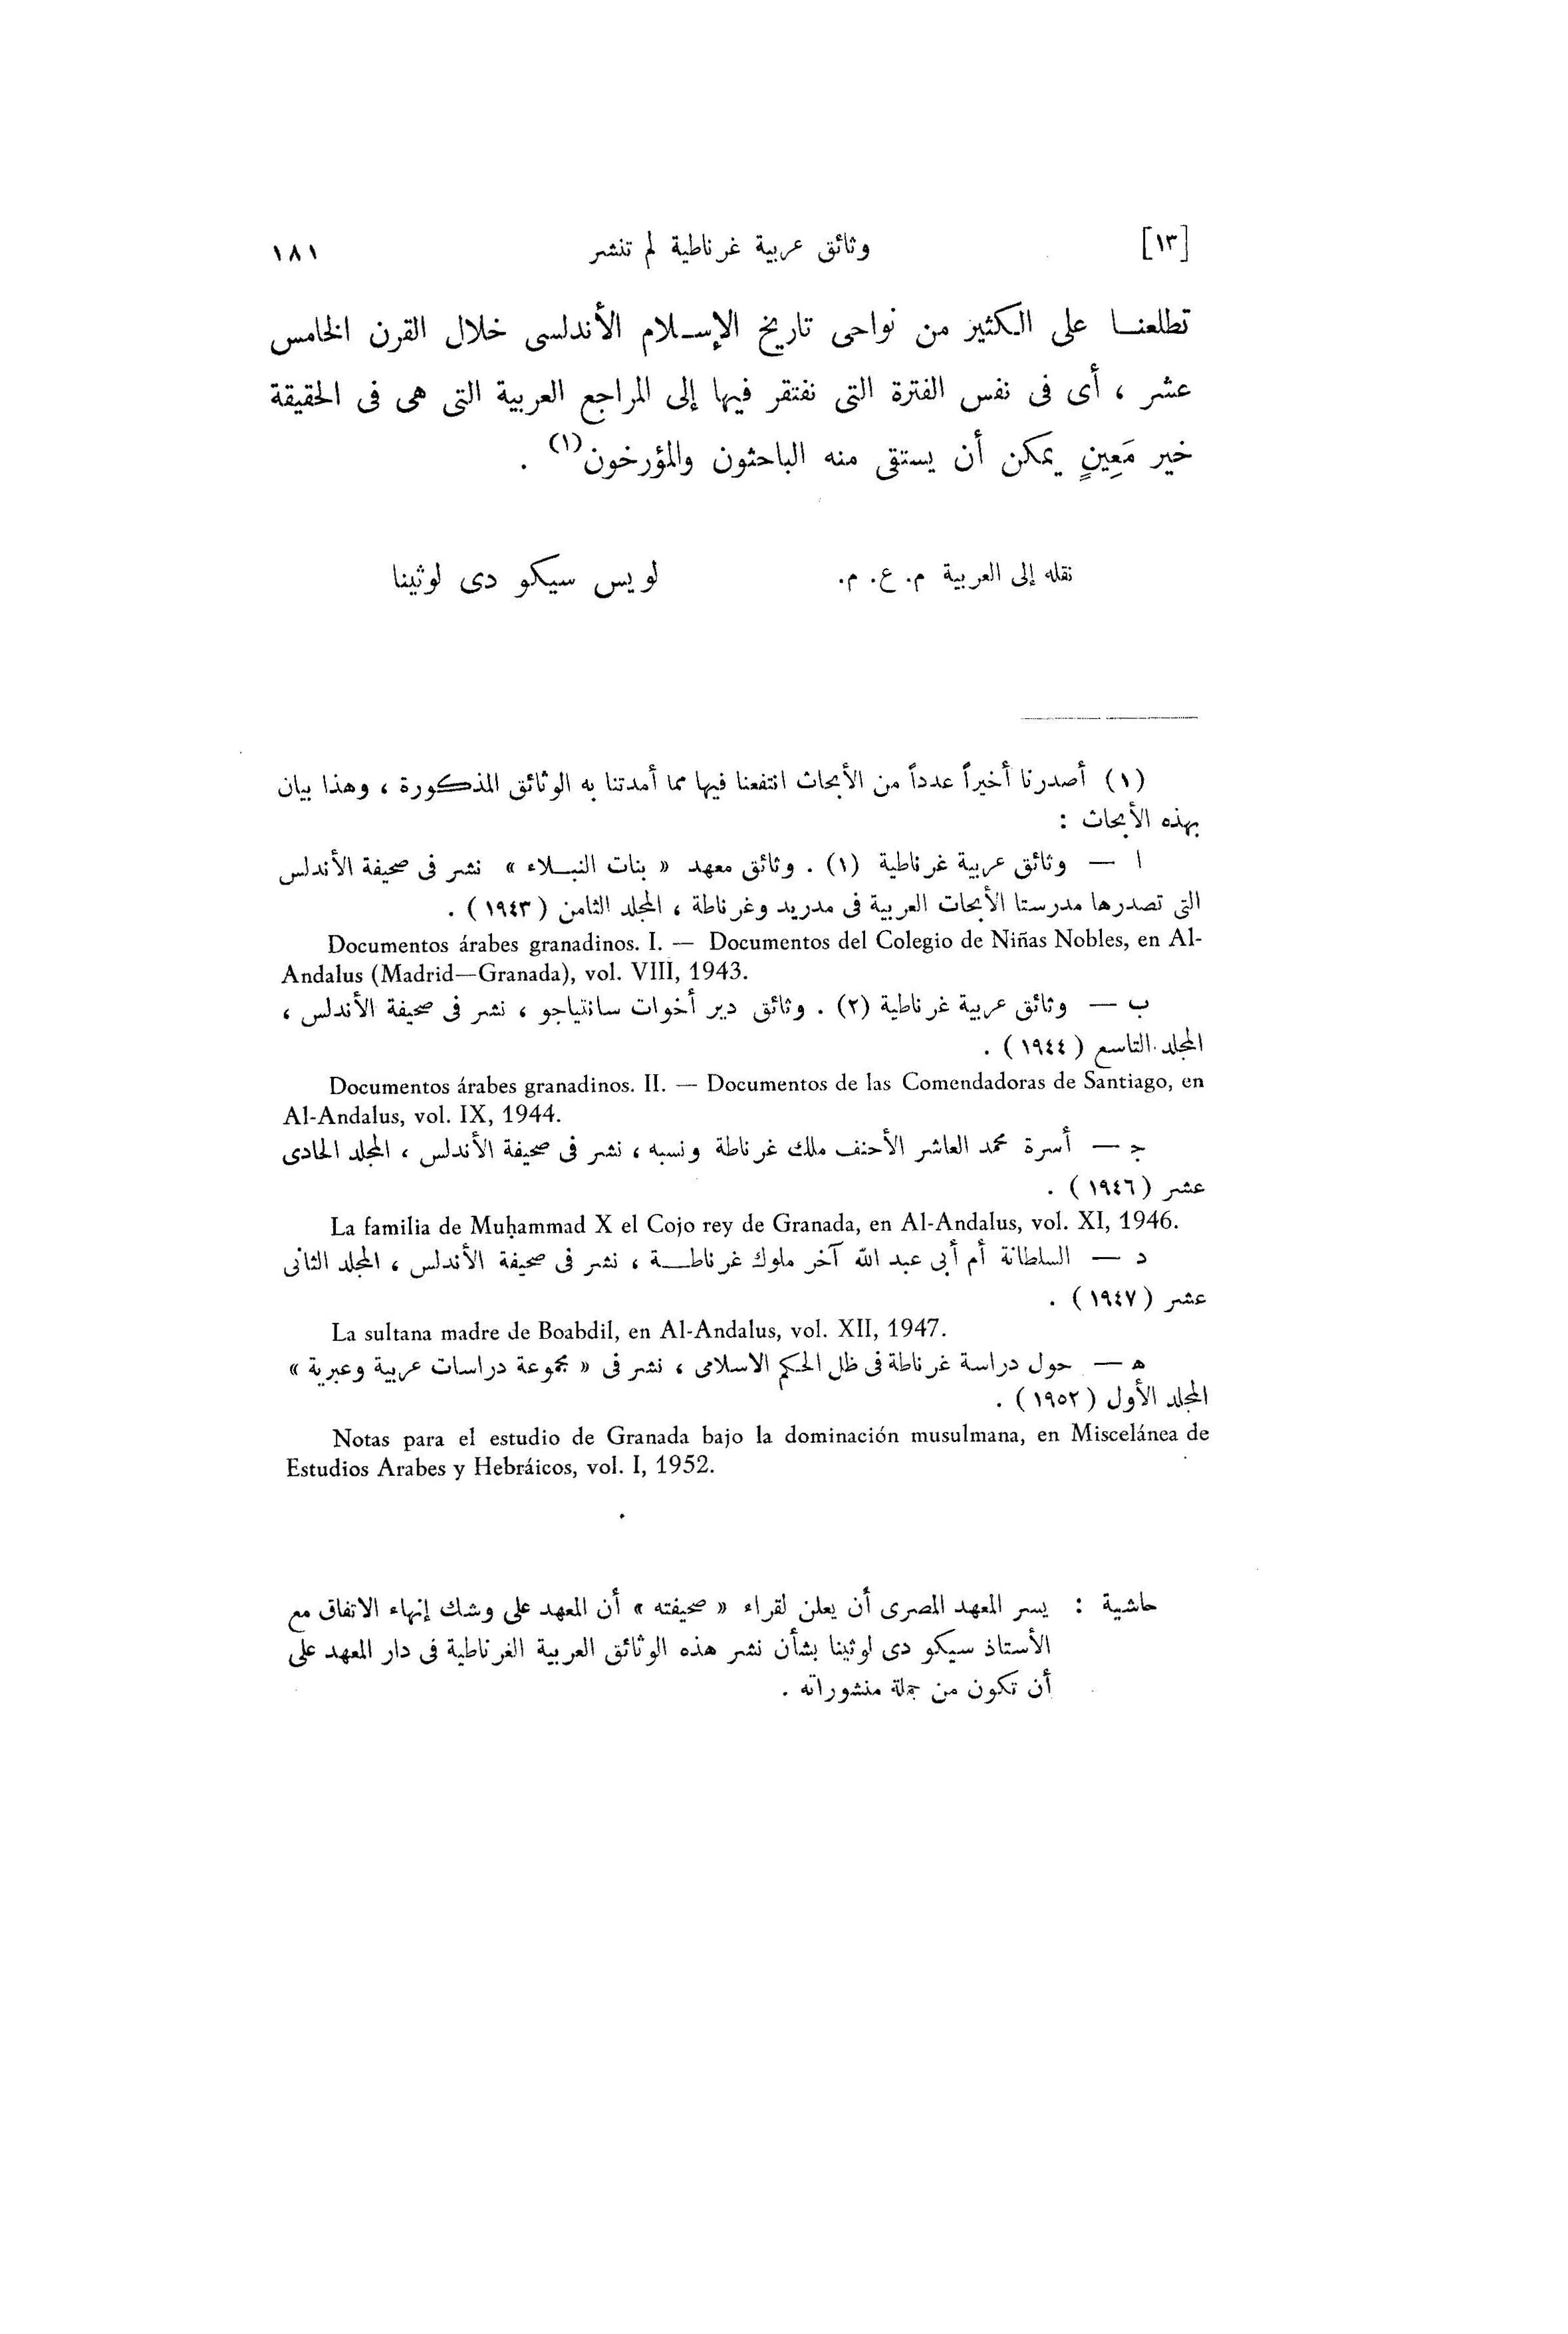 [١٣] وثائق عربية غرناطية لم تنشر ١٨١
تطلعنا على الكثير من نواحى تاريخ الإسلام الأندلسى خلال القرن الخامس
عشر ، أى فى نفس الفترة التى نفتقر فيها إلى المراجع العربية التى هى فى الحقيقة
خير مَعِينٍ يمكن أن يستقى منه الباحثون والمؤرخون(١) .
نقله إلى العربية م. ع. م. لويس سيكو دى لوثينا
(١) أصدرنا أخيراً عدداً من الأبحاث انتفعنا فيها مما أمدتنا به الوثائق المذكورة ، وهذا بيان
بهذه الأبحاث :
ا — وثائق عربية غرناطية (١) . وثائق معهد « بنات النبلاء » نشر فى صحيفة الأندلس
التى تصدرها مدرستا الأبحاث العربية فى مدريد وغرناطة ، المجلد الثامن (١٩٤٣) .
Documentos árabes granadinos. I. — Documentos del Colegio de Niñas Nobles, en Al-
Andalus (Madrid—Granada), vol. VIII, 1943.
ب — وثائق عربية غرناطية (٢) . وثائق دير أخوات سانتياجو ، نشر فى صحيفة الأندلس ،
المجلد التاسع (١٩٤٤) .
Documentos árabes granadinos. II. — Documentos de las Comendadoras de Santiago, en
Al-Andalus, vol. IX, 1944.
ج — أسرة محمد العاشر الأحنف ملك غرناطة ونسبه ، نشر فى صحيفة الأندلس ، المجلد الحادى
عشر (١٩٤٦) .
La familia de Muḥammad X el Cojo rey de Granada, en Al-Andalus, vol. XI, 1946.
د — السلطانة أم أبى عبد الله آخر ملوك غرناطة ، نشر فى صحيفة الأندلس ، المجلد الثانى
عشر (١٩٤٧) .
La sultana madre de Boabdil, en Al-Andalus, vol. XII, 1947.
ه — حول دراسة غرناطة فى ظل الحكم الاسلامى ، نشر فى « مجموعة دراسات عربية وعبرية »
المجلد الأول (١٩٥٢) .
Notas para el estudio de Granada bajo la dominación musulmana, en Miscelánea de
Estudios Arabes y Hebráicos, vol. I, 1952.
حاشية : يسر المعهد المصرى أن يعلن لقراء « صحيفته » أن المعهد على وشك إنهاء الاتفاق مع
الأستاذ سيكو دى لوثينا بشأن نشر هذه الوثائق العربية الغرناطية فى دار المعهد على
أن تكون من جملة منشوراته .